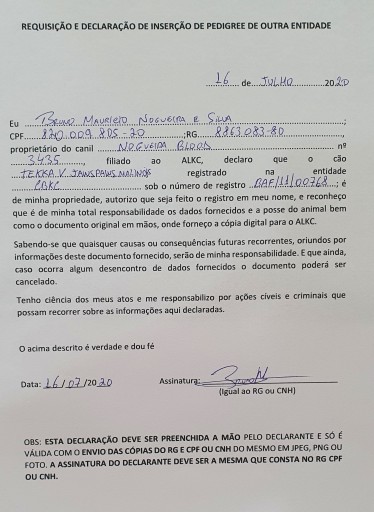 REQUISIÇÃO E DECLARAÇÃO DE INSERÇÃO DE PEDIGREE DE OUTRA ENTIDADE
16 de JULHO 2020
Eu BRUNO MAURICIO NOGUEIRA E SILVA ;
CPF 820.009.805-20 ;RG 8863083-80 ,
proprietário do canil NOGUEIRA BLOOD nº
3435 , filiado ao ALKC, declaro que o cão
TEKKA V. JAWSPAWS MALINOIS registrado na entidade
CBKC sob o número de registro BAF/11/00768 ; é
de minha propriedade, autorizo que seja feito o registro em meu nome, e reconheço
que é de minha total responsabilidade os dados fornecidos e a posse do animal bem
como o documento original em mãos, onde forneço a cópia digital para o ALKC.
Sabendo-se que quaisquer causas ou consequências futuras recorrentes, oriundos por
informações deste documento fornecido, serão de minha responsabilidade. E que ainda,
caso ocorra algum desencontro de dados fornecidos o documento poderá ser
cancelado.
Tenho ciência dos meus atos e me responsabilizo por ações cíveis e criminais que
possam recorrer sobre as informações aqui declaradas.
O acima descrito é verdade e dou fé
Data: 16/07/2020 Assinatura:
(Igual ao RG ou CNH)
OBS: ESTA DECLARAÇÃO DEVE SER PREENCHIDA A MÃO PELO DECLARANTE E SÓ É
VÁLIDA COM O ENVIO DAS CÓPIAS DO RG E CPF OU CNH DO MESMO EM JPEG, PNG OU
FOTO. A ASSINATURA DO DECLARANTE DEVE SER A MESMA QUE CONSTA NO RG CPF
OU CNH.